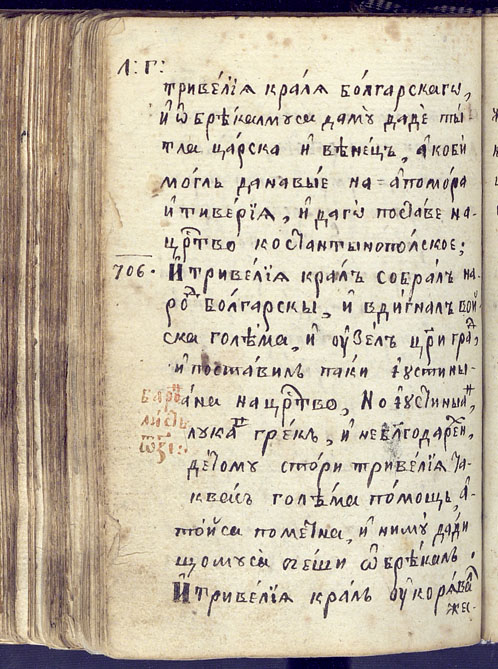 Л: Г:
тривелїѧ кралѧ болгарскагѡ,
и ѡбрѣкалмуса даму даде ты-
тла царска и вѣнецъ, акоби
моглъ да навые на апомора
и тиверїѧ, и даго поставе на-
црⷭтво костантынополское;
706. И тривелїѧ кралъ собралъ на-
роⷣ болгарскы, и вдигналъ вой
ска голѣма, и оузелъ цр҃и граⷣ,
и поставилъ паки іустины-
ана на црⷭтво, Но іустиныаⷩ,
лукаⷡ грекъ, и неблгодареⷩ,
дето му стори тривелїѧ та-
квась голѣма помощь, а-
той са помѣтна, и ниму дади
що му са беши ѡбрѣкалъ.
И тривелїѧ кралъ оукорѧва
же.